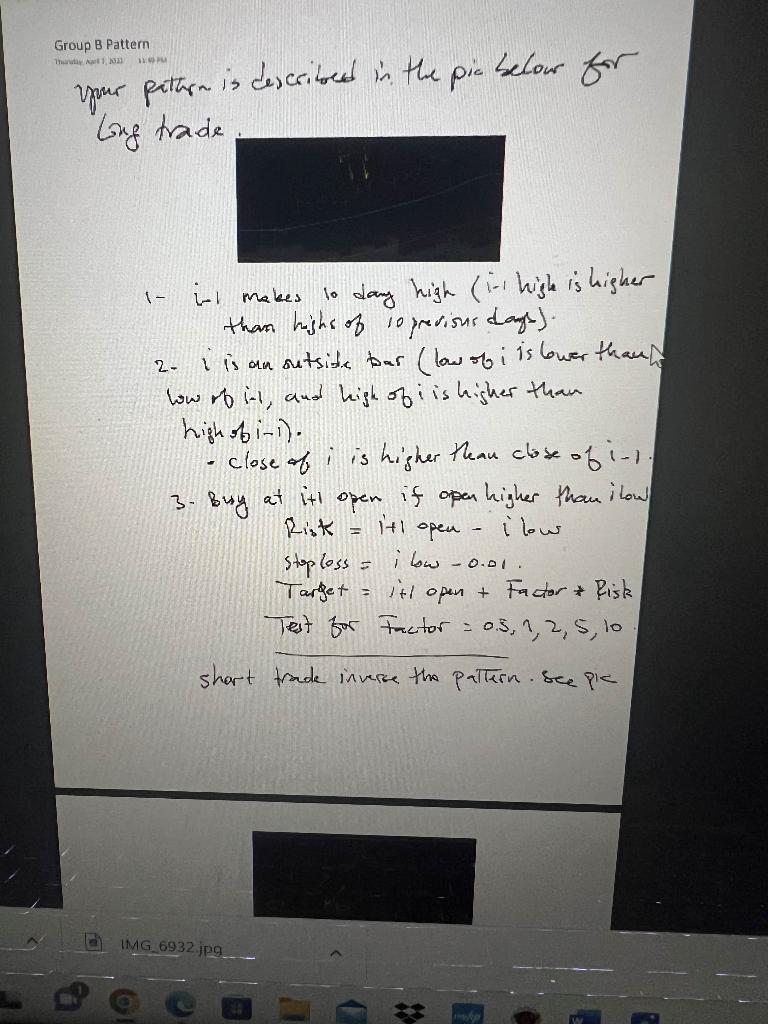 Group B Pattern
Thursday, April 7, 2022 11:49 PM
your pattern is described in the pic below for
long trade.
1- i-1 makes 10 day high (i-1 high is higher
than highs of 10 previous days).
2- i is an outside bar (low of i is lower than
low of i-1, and high of i is higher than
high of i-1).
- close of i is higher than close of i-1.
3- Buy at i+1 open if open higher than i low
Risk = i+1 open - i low
stop loss = i low - 0.01.
Target = i+1 open + Factor * Risk
Test for Factor = 0.5, 1, 2, 5, 10.
short trade inverse the pattern. see pic
IMG_6932.jpg